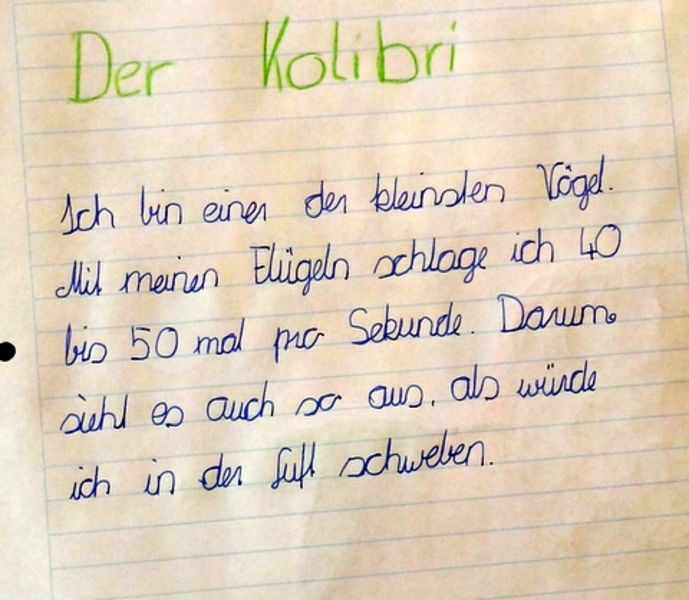 Der Kolibri
Ich bin einer der kleinsten Vögel.
Mit meinen Flügeln schlage ich 40
bis 50 mal pro Sekunde. Darum
sieht es auch so aus, als würde
ich in der Luft schweben.